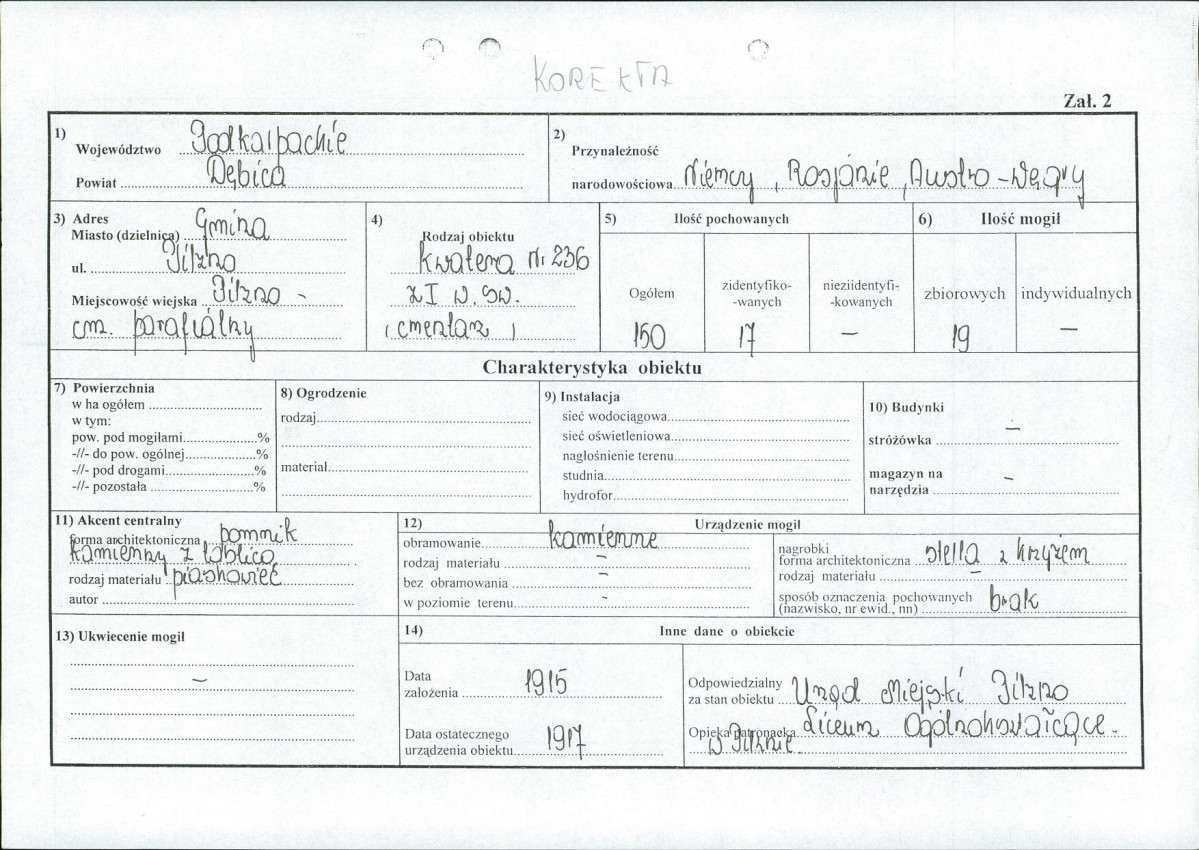 KOREKTA
Zał. 2
1)
Województwo Podkarpackie
Powiat Dębica
2)
Przynależność
narodowościowa Niemcy, Rosjanie, Austro-Węgry
3) Adres
Miasto (dzielnica) Gmina
ul. Pilzno
Miejscowość wiejska Pilzno -
cm. parafialny
4)
Rodzaj obiektu
Kwatera nr 236
z I w. św.
(cmentarz)
5) Ilość pochowanych
Ogółem
150
zidentyfiko-
-wanych
17
nieziidentyfi-
-kowanych
–
6) Ilość mogił
zbiorowych
19
indywidualnych
–
Charakterystyka obiektu
7) Powierzchnia
w ha ogółem
w tym:
pow. pod mogiłami %
-//- do pow. ogólnej %
-//- pod drogami %
-//- pozostała %
8) Ogrodzenie
rodzaj
materiał
9) Instalacja
sieć wodociągowa
sieć oświetleniowa
nagłośnienie terenu
studnia
hydrofor
10) Budynki
stróżówka –
magazyn na
narzędzia –
11) Akcent centralny
forma architektoniczna pomnik
kamienny z tablicą
rodzaj materiału piaskowiec
autor
12) Urządzenie mogił
obramowanie kamienne
rodzaj materiału –
bez obramowania –
w poziomie terenu -
nagrobki
forma architektoniczna stella z krzyżem
rodzaj materiału –
sposób oznaczenia pochowanych
(nazwisko, nr ewid., nn) brak
13) Ukwiecenie mogił
–
14) Inne dane o obiekcie
Data
założenia 1915
Data ostatecznego
urządzenia obiektu 1917
Odpowiedzialny
za stan obiektu Urząd Miejski Pilzno
Opieka patronacka Liceum Ogólnokształcące
w Pilznie.